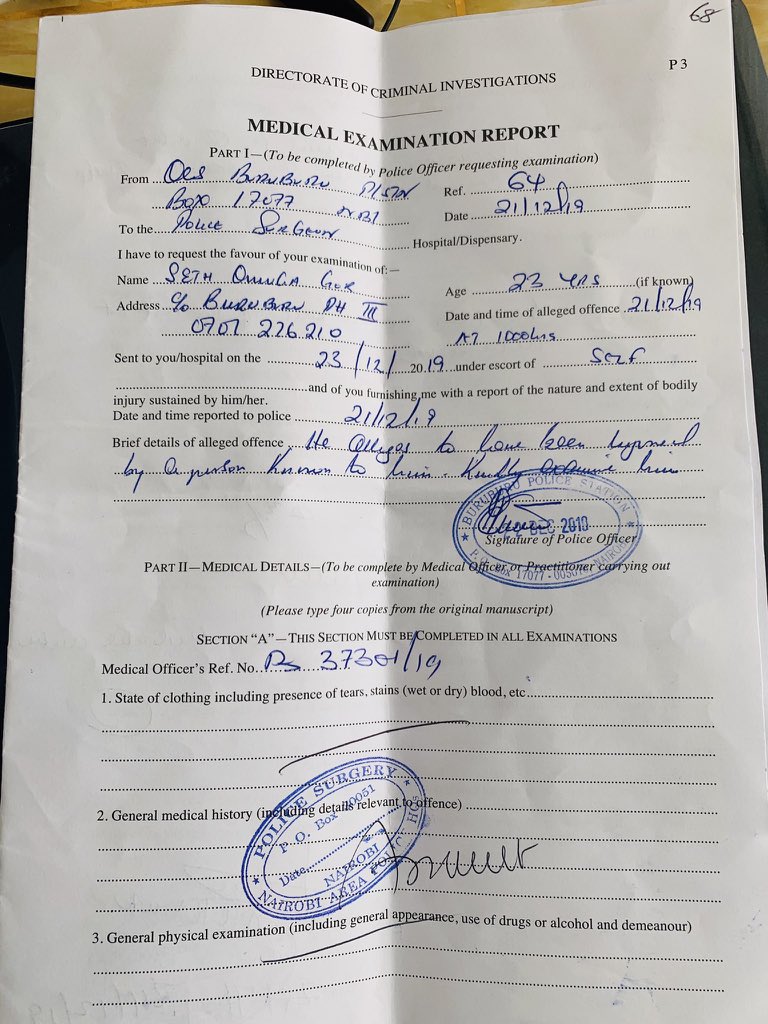 68
P 3
DIRECTORATE OF CRIMINAL INVESTIGATIONS
MEDICAL EXAMINATION REPORT
PART I—(To be completed by Police Officer requesting examination)
From OCS BURUBURU P/STN Ref. 64
BOX 17077 NRBI Date 21/12/19
To the POLICE SURGEON Hospital/Dispensary.
I have to request the favour of your examination of:—
Name SETH GOR Age 23 YRS (if known)
Address C/O BURUBURU PH III Date and time of alleged offence 21/12/19
0701 226 210 AT 1000hrs
Sent to you/hospital on the 23/12/ 2019 under escort of SELF
and of you furnishing me with a report of the nature and extent of bodily
injury sustained by him/her.
Date and time reported to police 21/12/19
Brief details of alleged offence He alleges to have been
by a person known to him. Kindly examine him
BURUBURU POLICE STATION
DEC 2019
Signature of Police Officer
P. O. Box 17077 - NAIROBI
PART II—MEDICAL DETAILS—(To be complete by Medical Officer or Practitioner carrying out
examination)
(Please type four copies from the original manuscript)
SECTION “A”—THIS SECTION MUST BE COMPLETED IN ALL EXAMINATIONS
Medical Officer's Ref. No. 37301/19
1. State of clothing including presence of tears, stains (wet or dry) blood, etc
POLICE SURGERY
P. O. Box
2. General medical history (including details relevant to offence)
Date
NAIROBI
NAIROBI AREA POLICE
3. General physical examination (including general appearance, use of drugs or alcohol and demeanour)